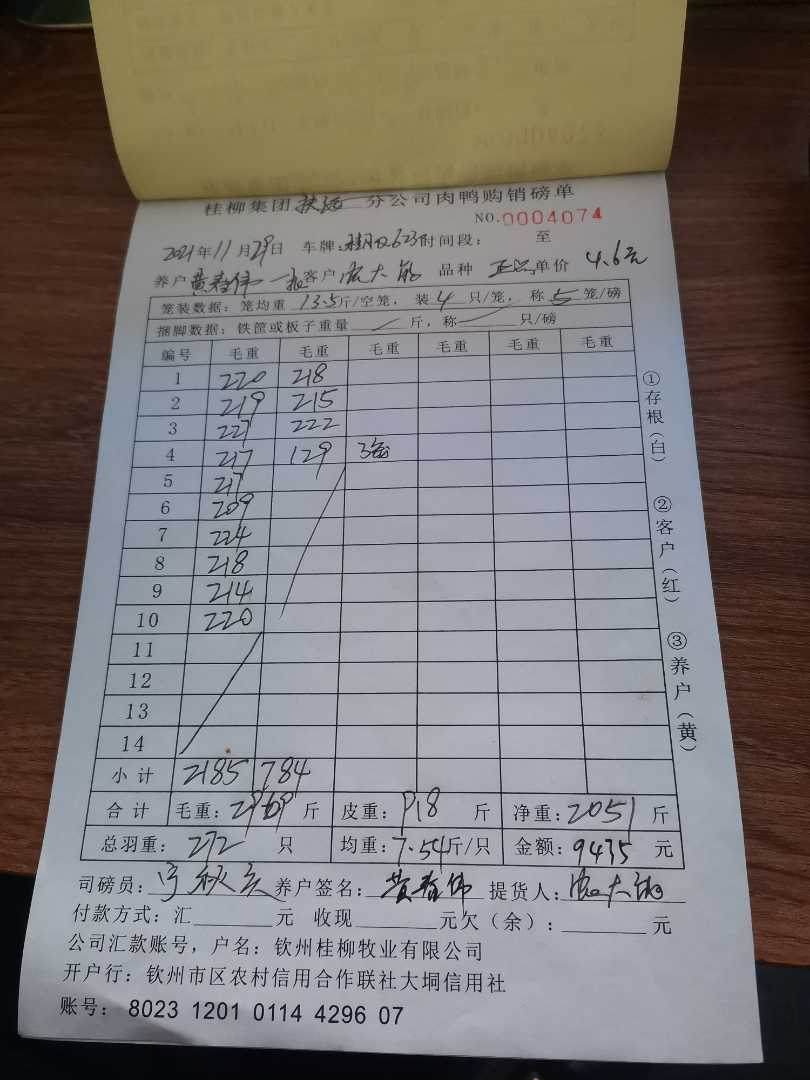 桂柳集团 分公司肉鸭购销磅单
NO.0004074
2021年11月29日 车牌: 623时间段: 至
养户黄春伟 一批客户 大 品种 正品单价 4.6元
笼装数据: 笼均重 13.5斤/空笼, 装4只/笼, 称5笼/磅
捆脚数据: 铁筐或板子重量 斤, 称 只/磅
编号 毛重 毛重 毛重 毛重 毛重 毛重
1 220 218
2 219 215
3 227 222
4 217 129 3笼
5 217
6 209
7 224
8 218
9 214
10 220
11
12
13
14
小计 2185 784
合计 毛重: 2969斤 皮重: 918斤 净重: 2051斤
总羽重: 272只 均重: 7.54斤/只 金额: 9435元
司磅员: 宁秋 养户签名: 黄春伟 提货人: 大
付款方式: 汇 元 收现 元欠(余): 元
公司汇款账号, 户名: 钦州桂柳牧业有限公司
开户行: 钦州市区农村信用合作联社大垌信用社
账号: 8023 1201 0114 4296 07
①存根(白)
②客户(红)
③养户(黄)